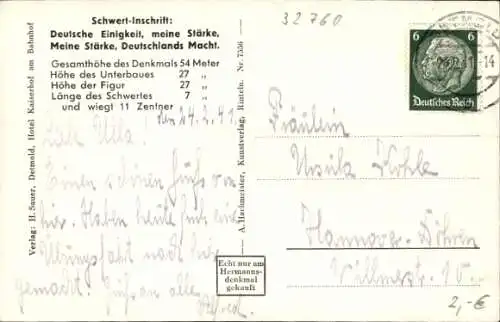 32760
Schwert-Inschrift:
Deutsche Einigkeit, meine Stärke,
Meine Stärke, Deutschlands Macht.
Gesamthöhe des Denkmals 54 Meter
Höhe des Unterbaues 27 „
Höhe der Figur 27 „
Länge des Schwertes 7 „
und wiegt 11 Zentner
Verlag: H. Sauer, Detmold, Hotel Kaiserhof am Bahnhof
A. Hachmeister, Kunstverlag, Rinteln. Nr. 7556
6 6
Deutsches Reich
den 24.2.41.
Einen schönen Gruß von
hier. Haben heute
Übungsfahrt nach hier
gemacht. Gruß an alle
Fräulein
Ursula Kohle
Hannover-Döhren
Echt nur am
Hermanns-
denkmal
gekauft
2,-€